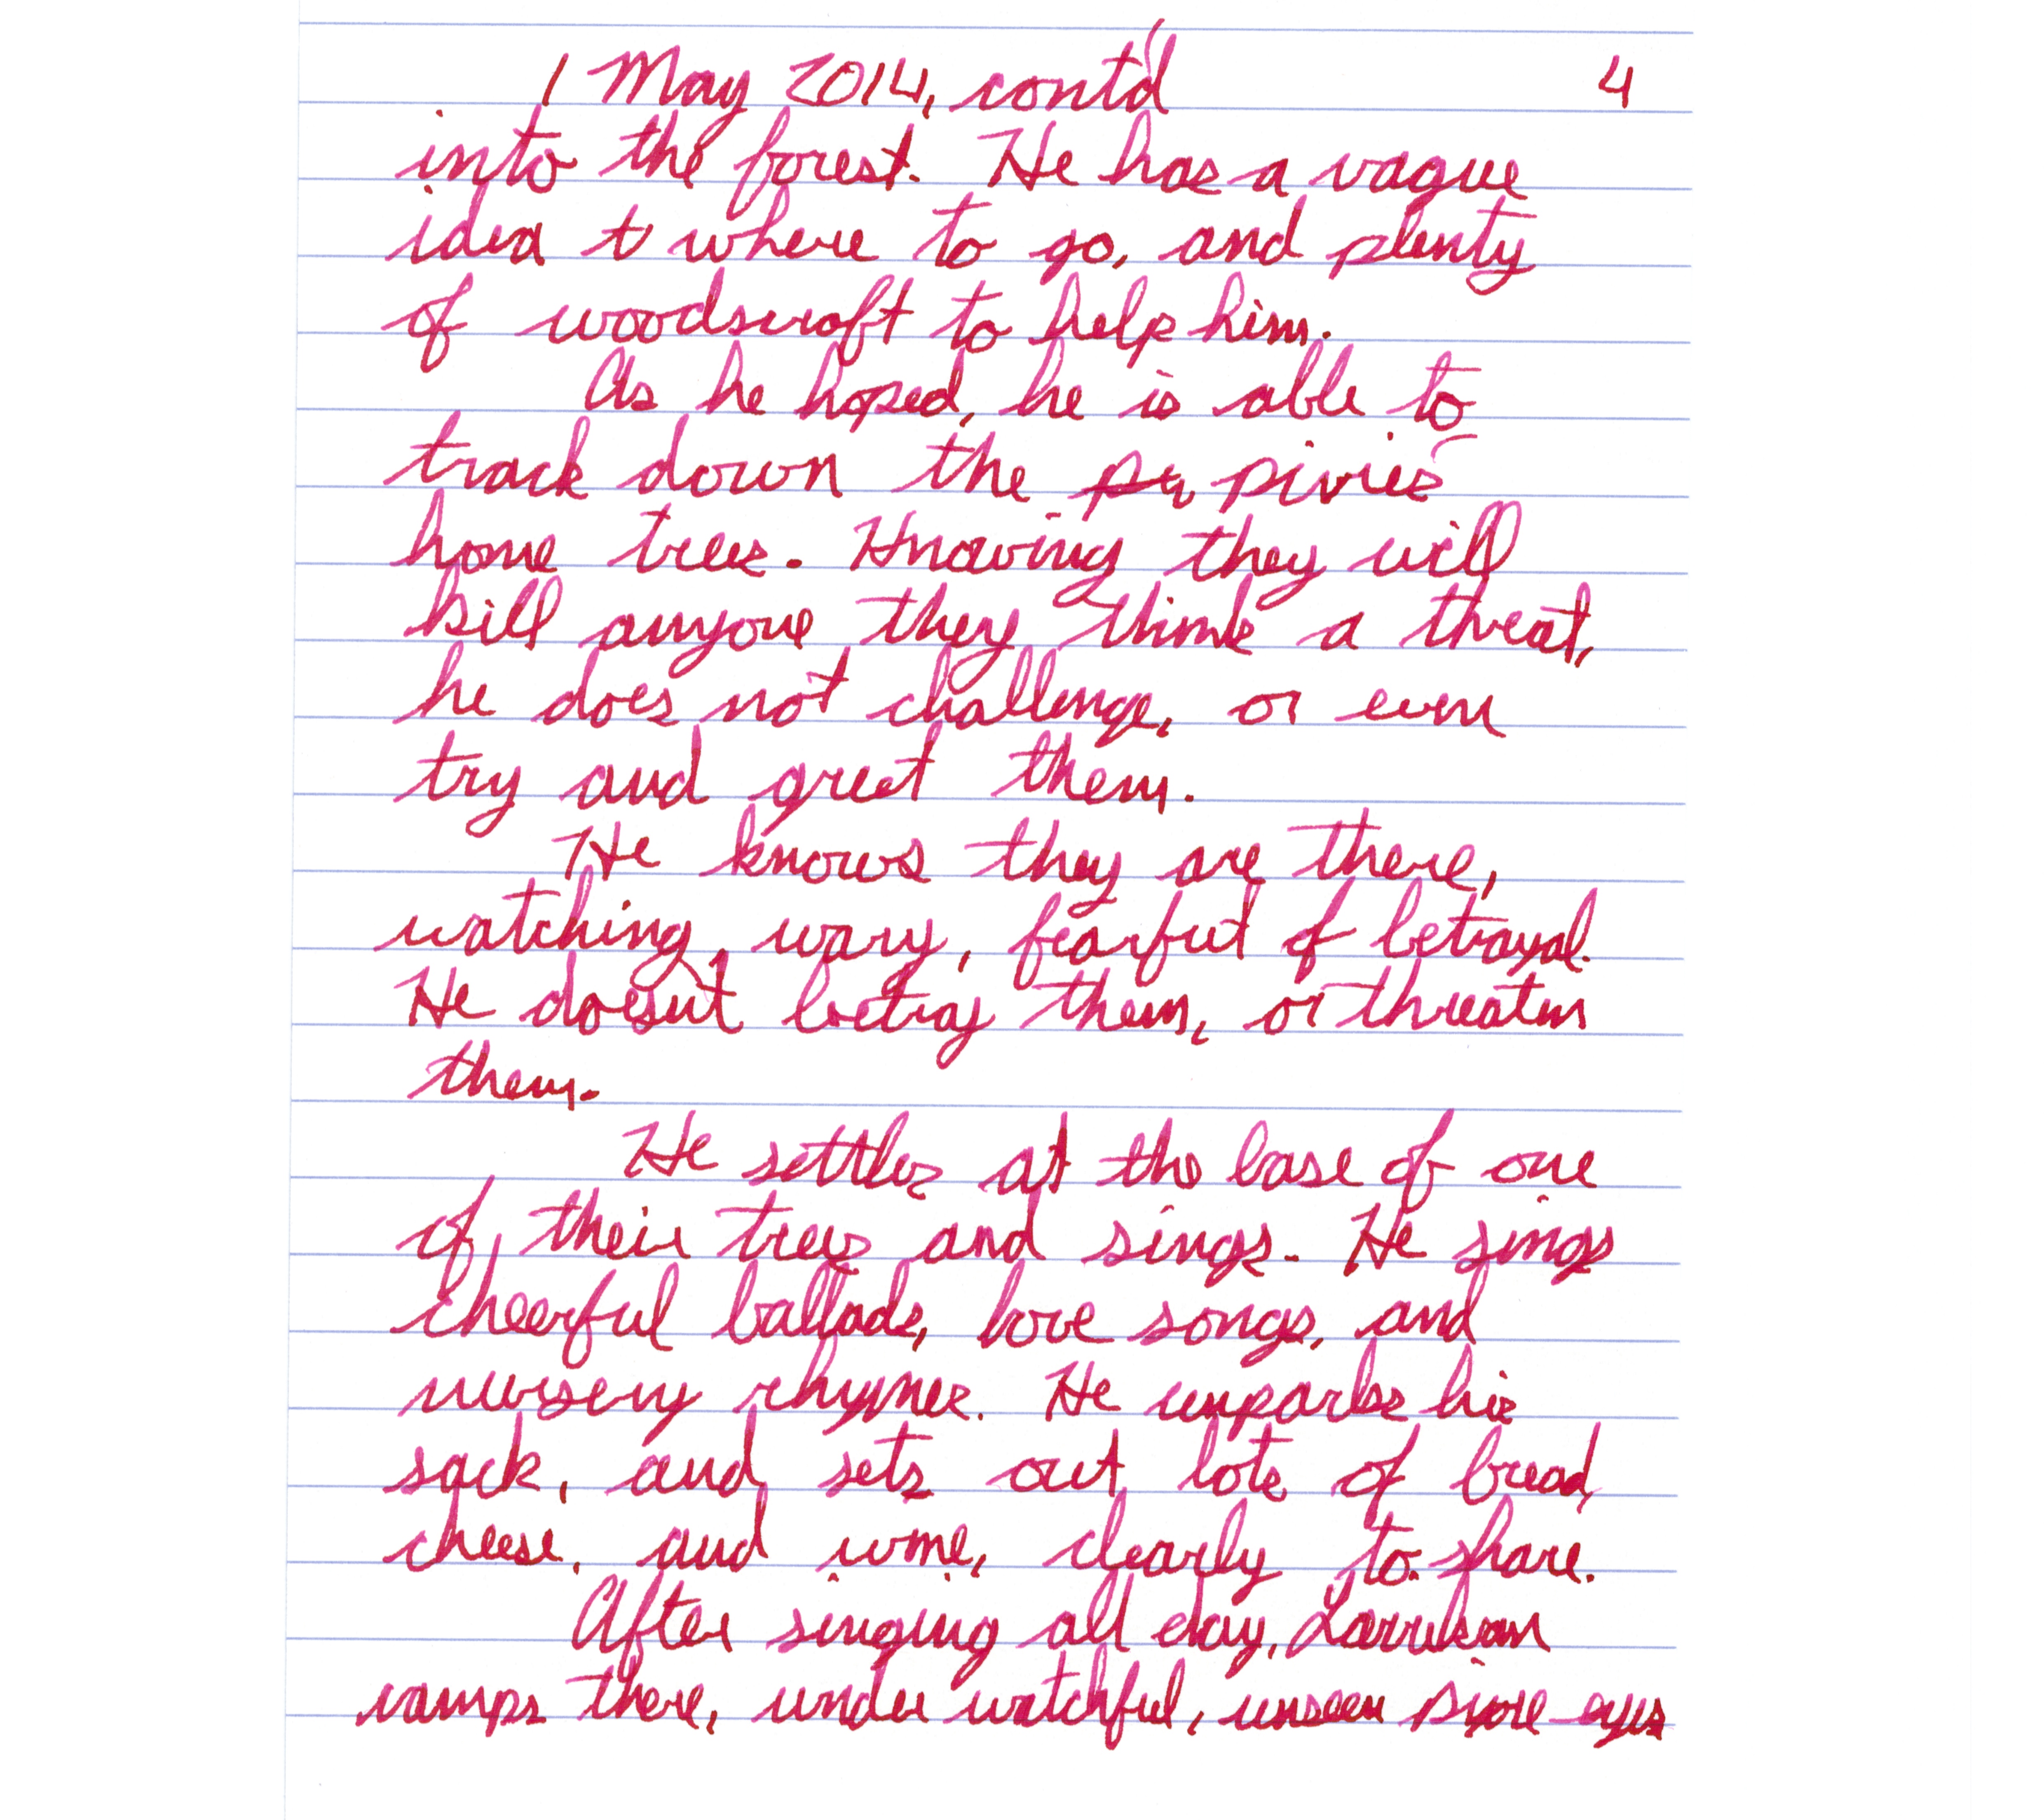 1 May 2014, cont'd 4
into the forest. He has a vague
idea t where to go, and plenty
of woodscraft to help him.
As he hoped, he is able to
track down the pivies'
home trees. Knowing they will
kill anyone they think a threat,
he does not challenge, or even
try and greet them.
He knows they are there,
watching, wary, fearful of betrayal.
He doesn't betray them, or threaten
them.
He settles at the base of one
of their trees and sings. He sings
cheerful ballads, love songs, and
nursery rhymes. He unpacks his
sack, and sets out lots of bread,
cheese, and wine, clearly to share.
After singing all day, Larrikan
camps there, under watchful, unseen eyes